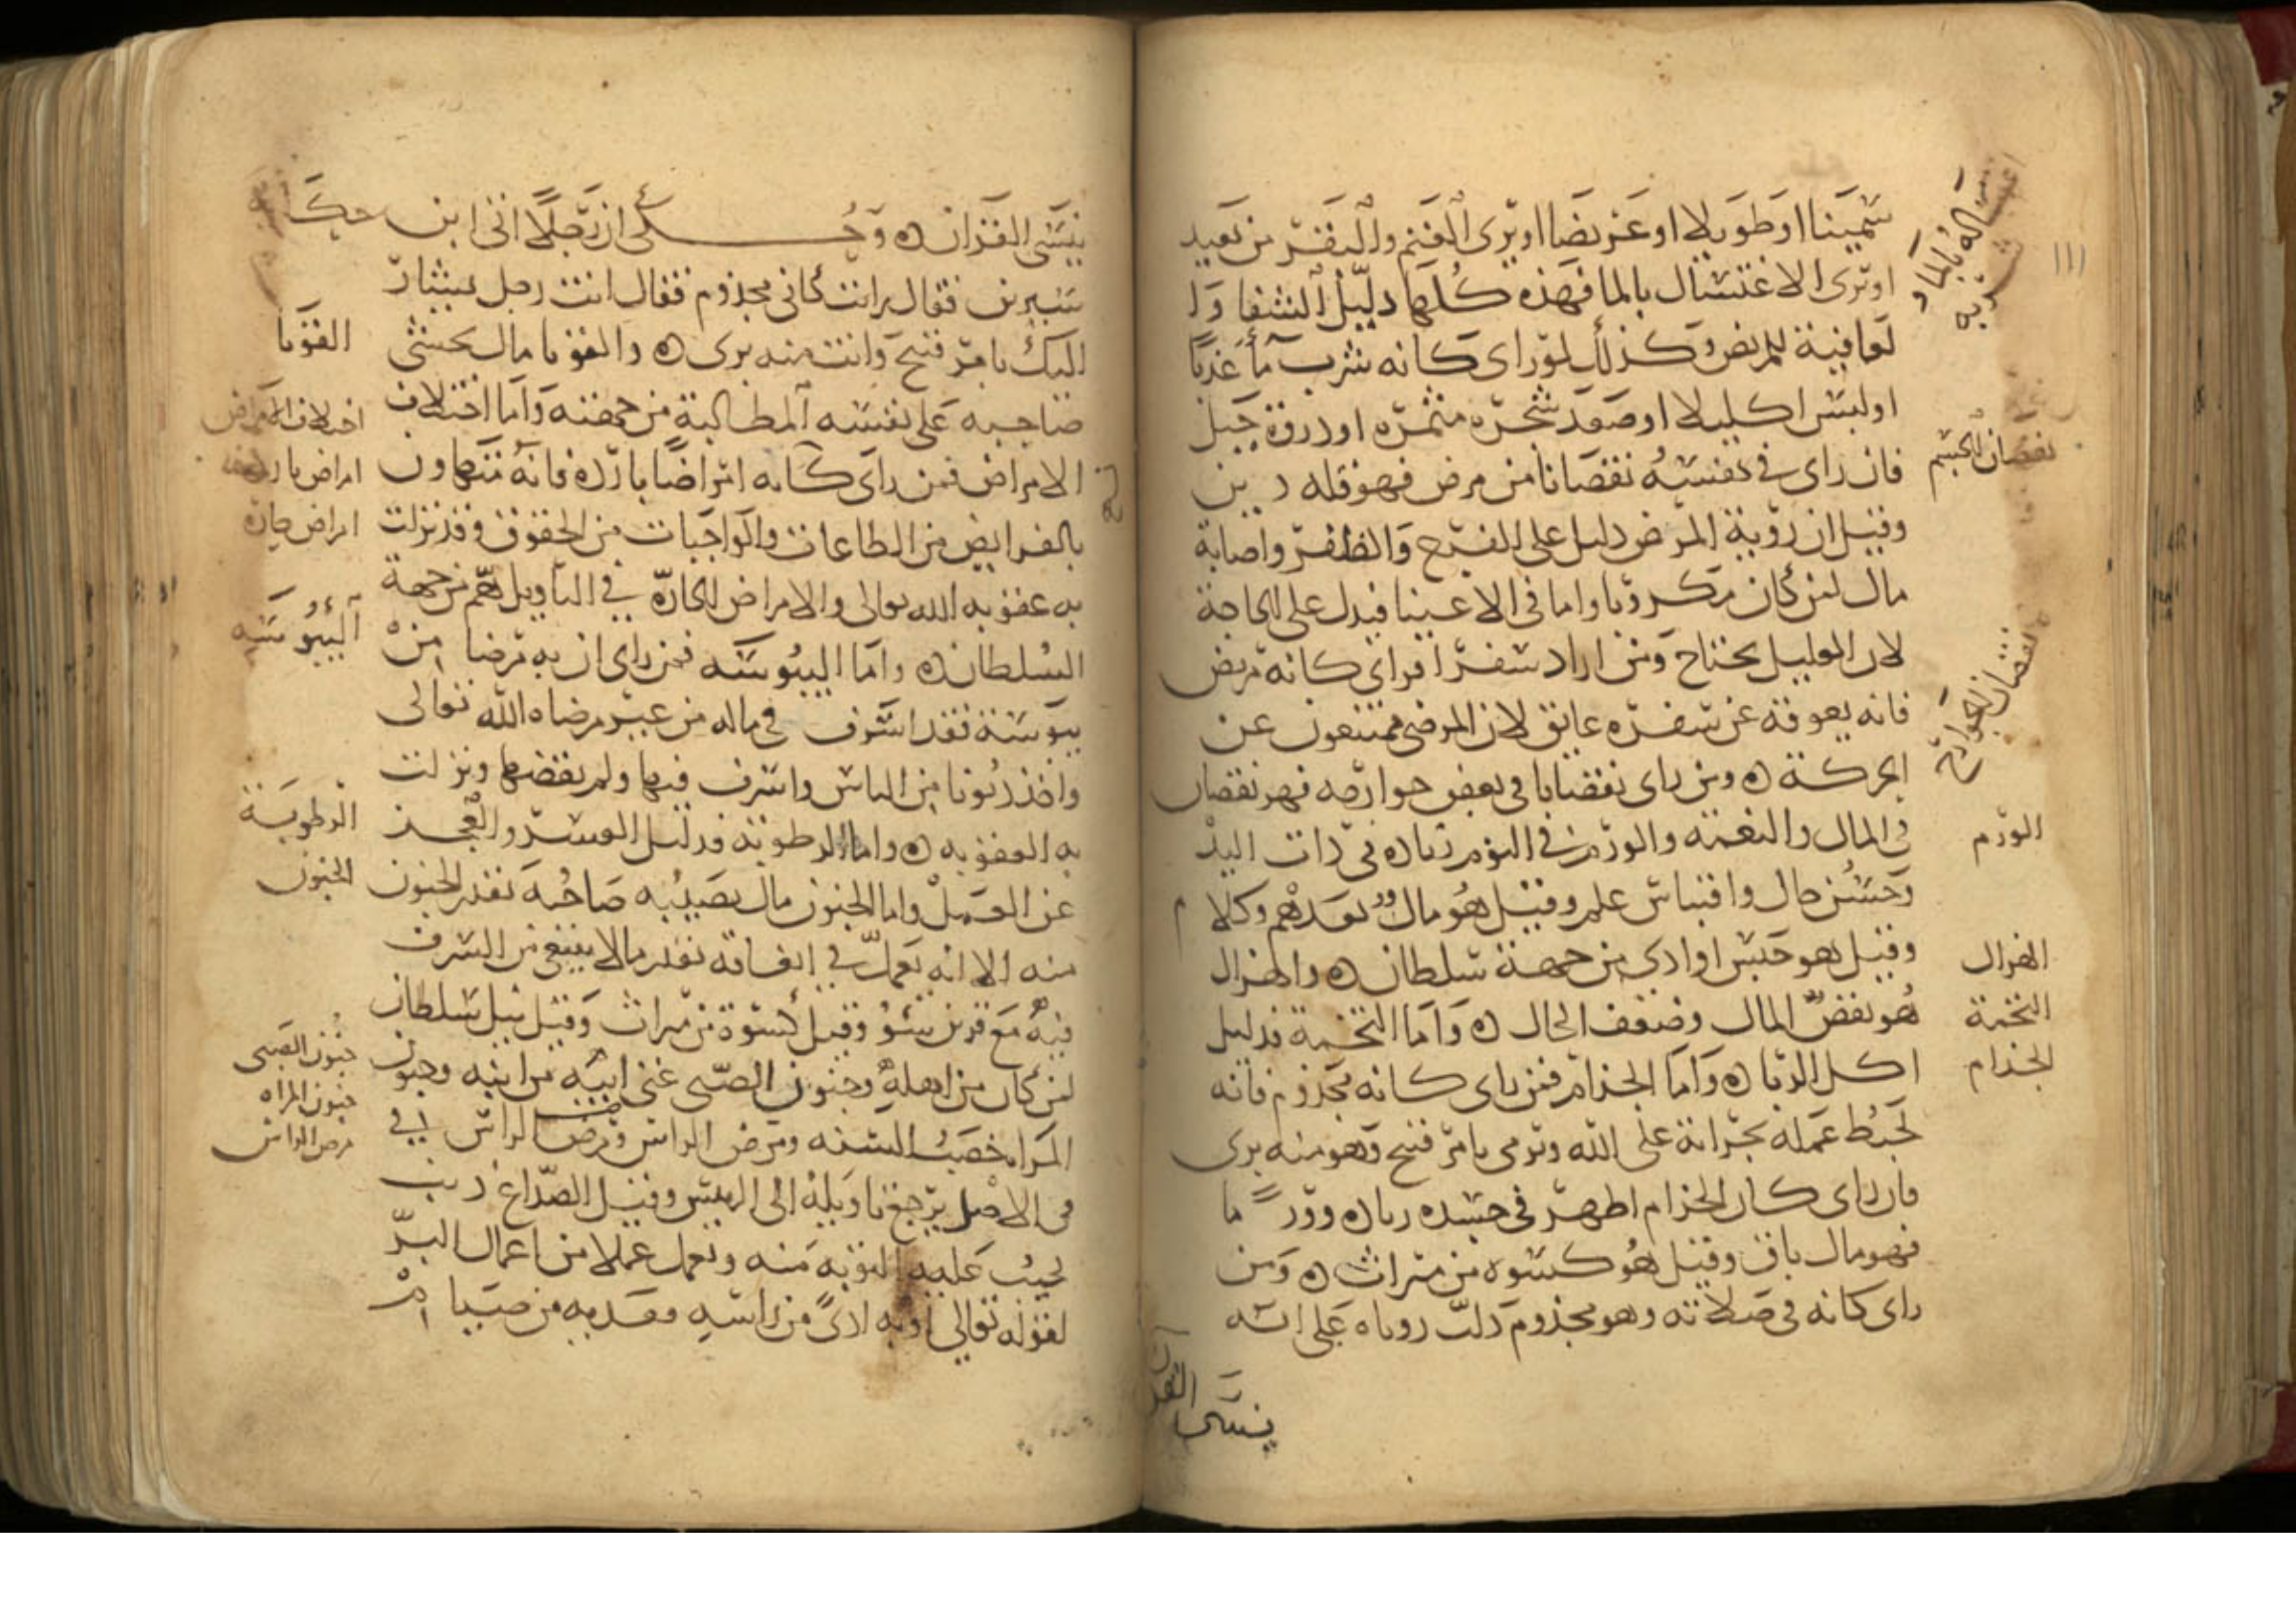 سمينا او طويلا او عريضا او يرى الغنم والبقر من بعيد
او يرى الاغتسال بالما فهذه كلها دليل الشفا وا
لعافية للمريض وكذلك لو راى كانه شرب ما عذبا
او لبس اكليلا او صعد شجره مثمره او ذروة جبل
فان راى في نفسه نقصانا من مرض فهو قله دين
وقيل ان روية المرض دليل على الفرح والظفر واصابة
مال لمن كان مكروبا واما في الاغنيا فيدل على الحاجة
لان العليل محتاج ومن اراد سفرا فراى كانه مريض
فانه يعوقه عن سفره عايق لان المرضى ممتنعون عن
الحركة ه ومن راى نقصانا في بعض جوارحه فهو نقصان
في المال والنعمة والورم في النوم زياده في ذات اليد
وحسن حال واقتباس علم وقيل هو مال بعد هم وكلام
وقيل هو حبس او اذى من جهة سلطان ه والهزال
هو نقص المال وضعف الحال ه واما التخمة فدليل
اكل الربا ه واما الجذام فمن راى كانه مجذوم فانه
يحبط عمله بجرانة على الله ويرمى بامر قبيح وهو منه برى
فان راى كان الجذام اظهر في جسده زياده وورما
فهو مال باق وقيل هو كسوه من ميراث ه ومن
راى كانه في صلاته وهو مجذوم دلت روياه على انه
ينسى القران
١١١
اغتساله بالما وشربه
نقصان الجسم
نقصان الجوارح
الورم
الهزال
التخمة
الجذام
ينسى القران ه وحكى ان رجلا اتى ابن
سيرين فقال رايت كاني مجذوم فقال انت رجل يشار
اليك بامر قبيح وانت منه برى ه والقوبا مال يخشى
صاحبه على نفسه المطالبة من جهته واما اختلاف
الامراض فمن راى كانه امراضا بارده فانه متهاون
بالفرايض من الطاعات والواجبات من الحقوق وقد نزلت
به عقوبه الله تعالى والامراض الحارة في التاويل هم من جهة
السلطان ه واما اليبوسه فمن راى ان به مرضا من
يبوسة فقد اسرف في ماله من غير مرضاه الله تعالى
واخذ ديونا من الناس واسرف فيها ولم يقضها ونزلت
به العقوبه ه واما الرطوبة فدليل العسر والعجز
عن العمل واما الجنون مال يصيبه صاحبه بقدر الجنون
منه الا انه يعمل في انفاقه بقدر مالا ينبغي من السرف
فيه مع قرين سوء وقيل كسوة من ميراث وقيل نيل سلطان
لمن كان من اهله وجنون الصبى غنى ابيه من ابنه وجنون
المراه خصب السنه ومرض الراس ومرض الراس
في الاصل يرجع تاويله الى الرييس وقيل الصداع ذنب
يجب عليه التوبة منه ويعمل عملا من اعمال البر
لقوله تعالى او به اذى من راسه ففديه من صيام
حكايه
القوبا
اختلاف الامراض
امراض بارده
امراض حاره
اليبوسه
الرطوبة
الجنون
جنون الصبى
جنون المراه
مرض الراس